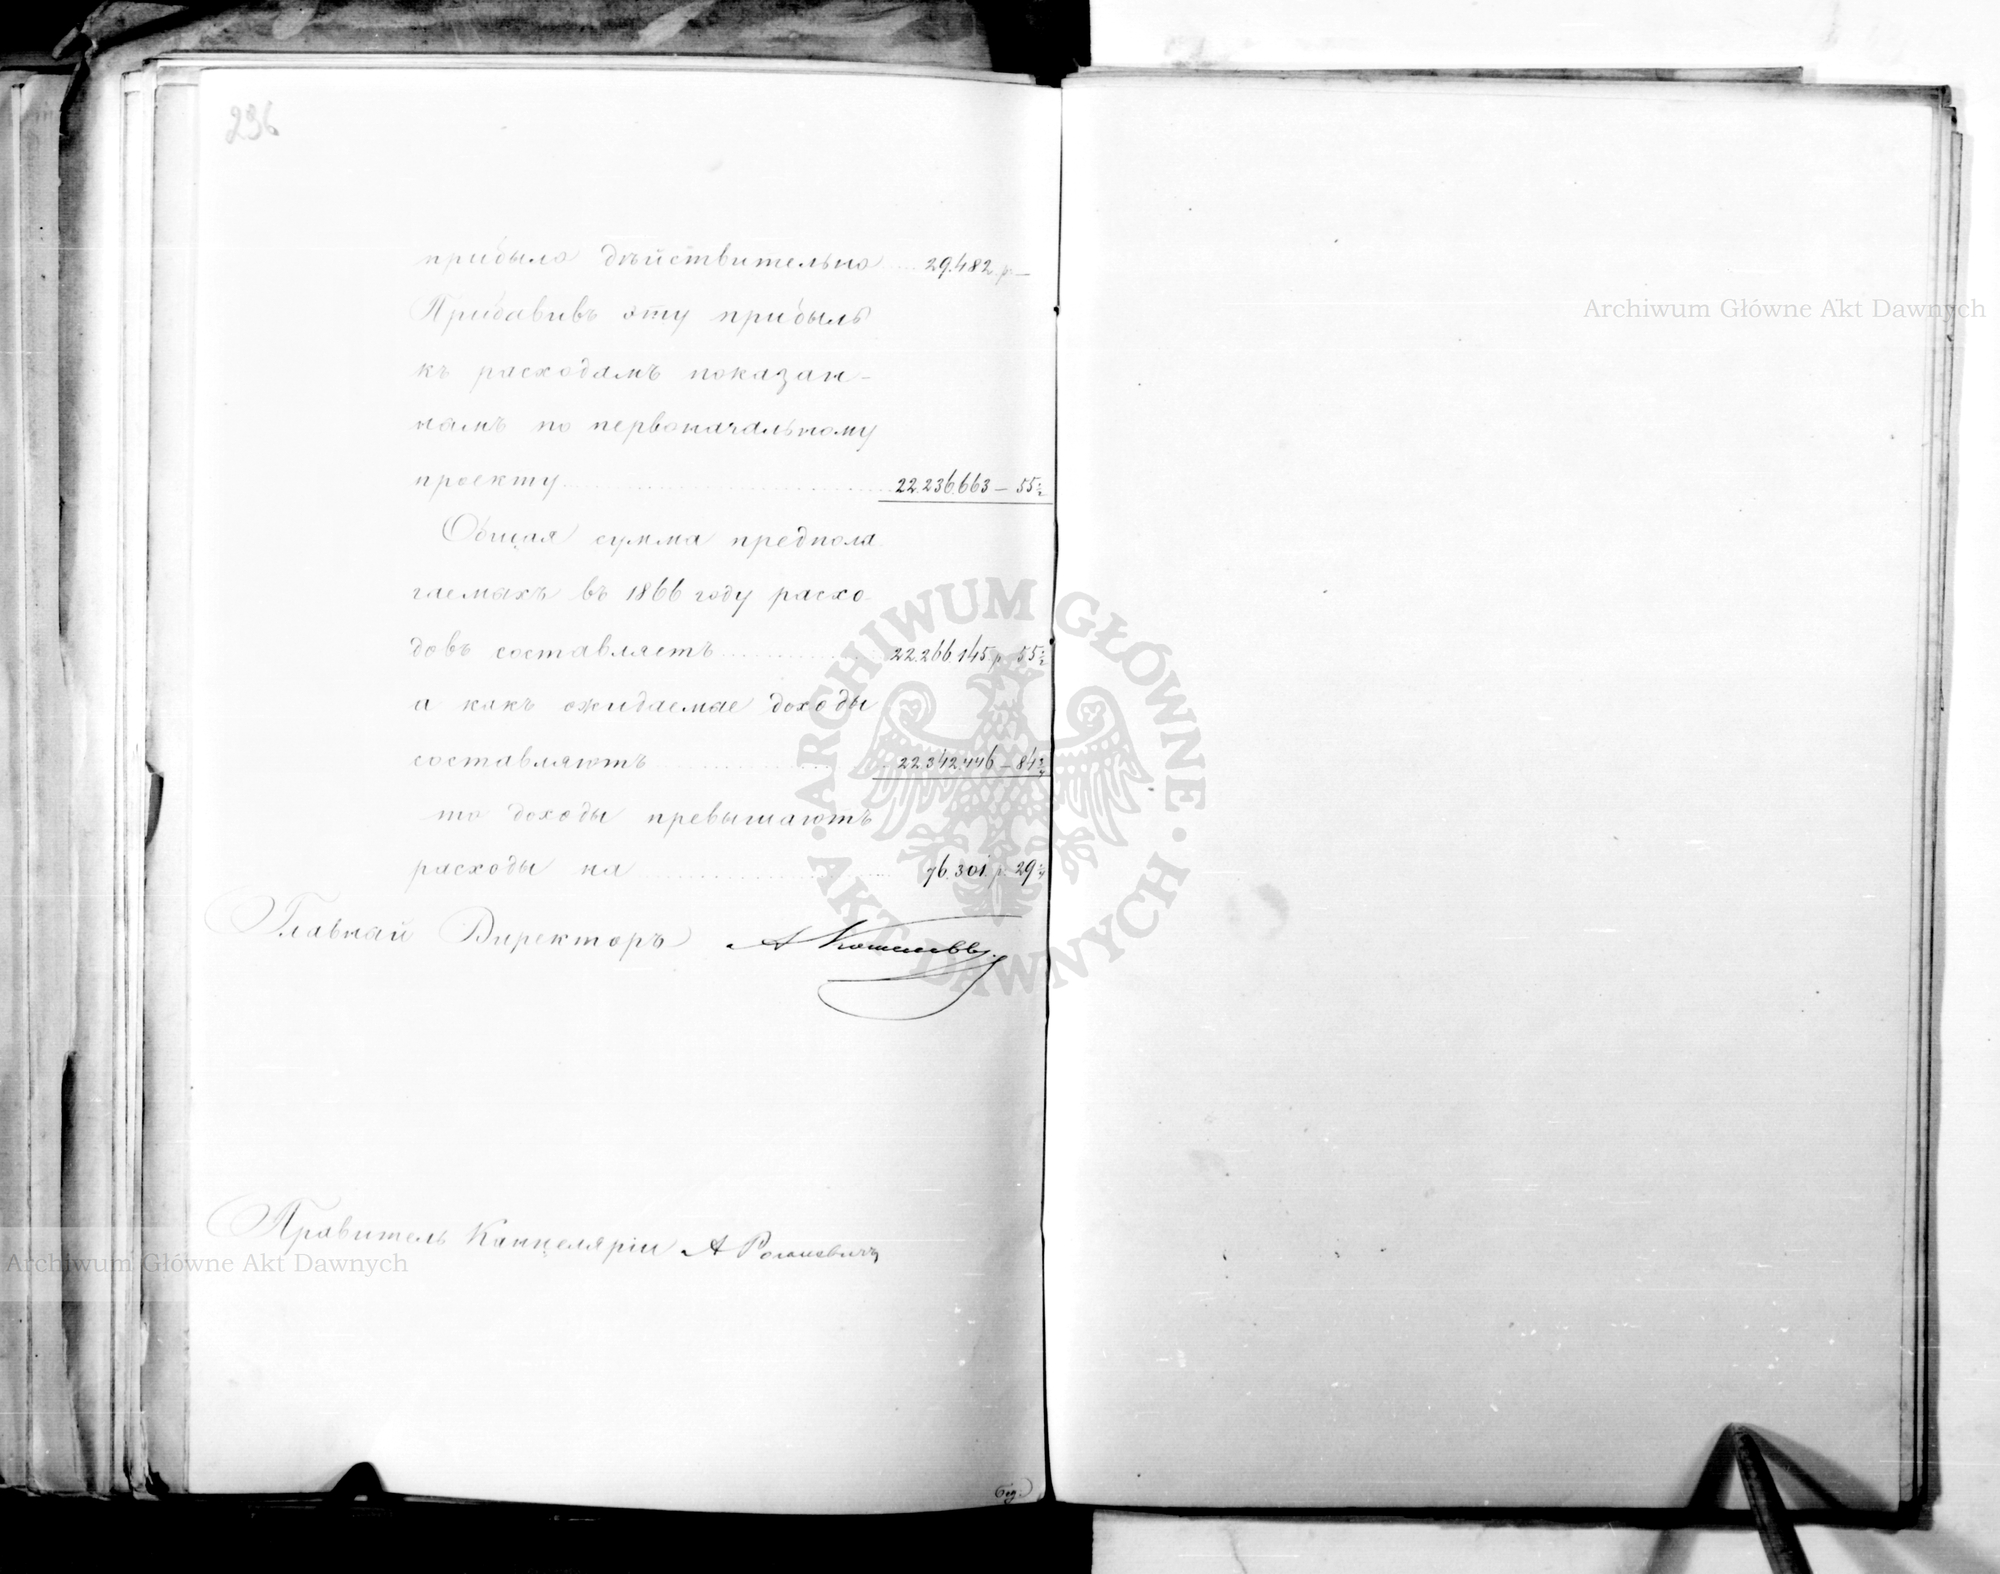 236
прибыло дѣйствительно ..... 29.482 р —
Прибавивъ эту прибыль
къ расходамъ показан-
нымъ по первоначальному
проекту ..... 22.236.663 — 55 1/2
Общая сумма предпола
гаемыхъ въ 1866 году расхо-
довъ составляетъ ..... 22.266.145 р 55 1/2
а какъ ожидаемые доходы
составляютъ ..... 22.342.446 — 84 3/4
то доходы превышаютъ
расходы на ..... 76.301 р 29 1/4
Главный Директоръ А Кошелевъ
Правитель Канцеляріи А
Archiwum Główne Akt Dawnych
Archiwum Główne Akt Dawnych
ARCHIWUM GŁÓWNE · AKT DAWNYCH ·